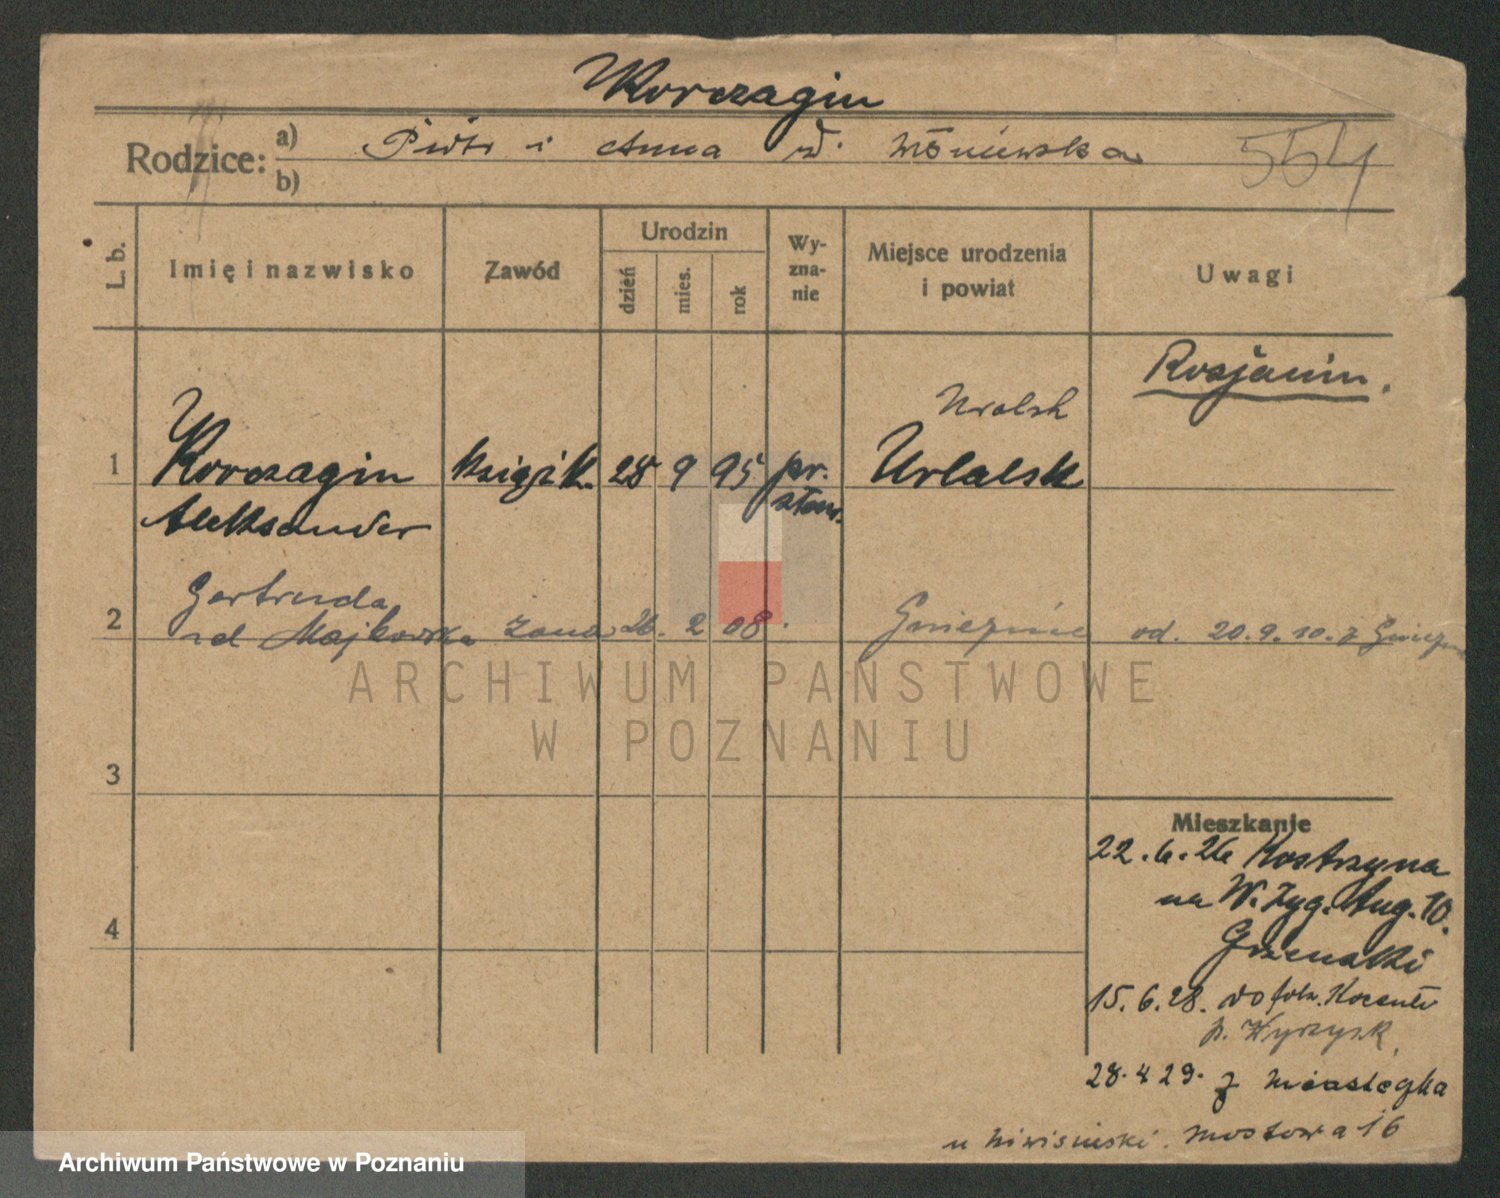 Korczagin
Rodzice: a) Piotr i Anna d.
b)
554
L. b. Imię i nazwisko Zawód Urodzin dzień mies. rok Wy-zna-nie Miejsce urodzenia i powiat Uwagi
Rosjanin.
Uralsk
1 Korczagin książk. 28 9 95 pr. Urlalsk
Aleksander sław.
Gertruda
2 od Majkowska żona 26. 2 08. Gnieznie od. 20.9.10. z
ARCHIWUM PAŃSTWOWE
W POZNANIU
3
Mieszkanie
22.6.26 Kostrzyna
na W. Zyg. Aug. 10.
4
15.6.28. do folw.
p. Wyrzysk
28.4 29. z Miasteczka
u Mostowa 16
Archiwum Państwowe w Poznaniu